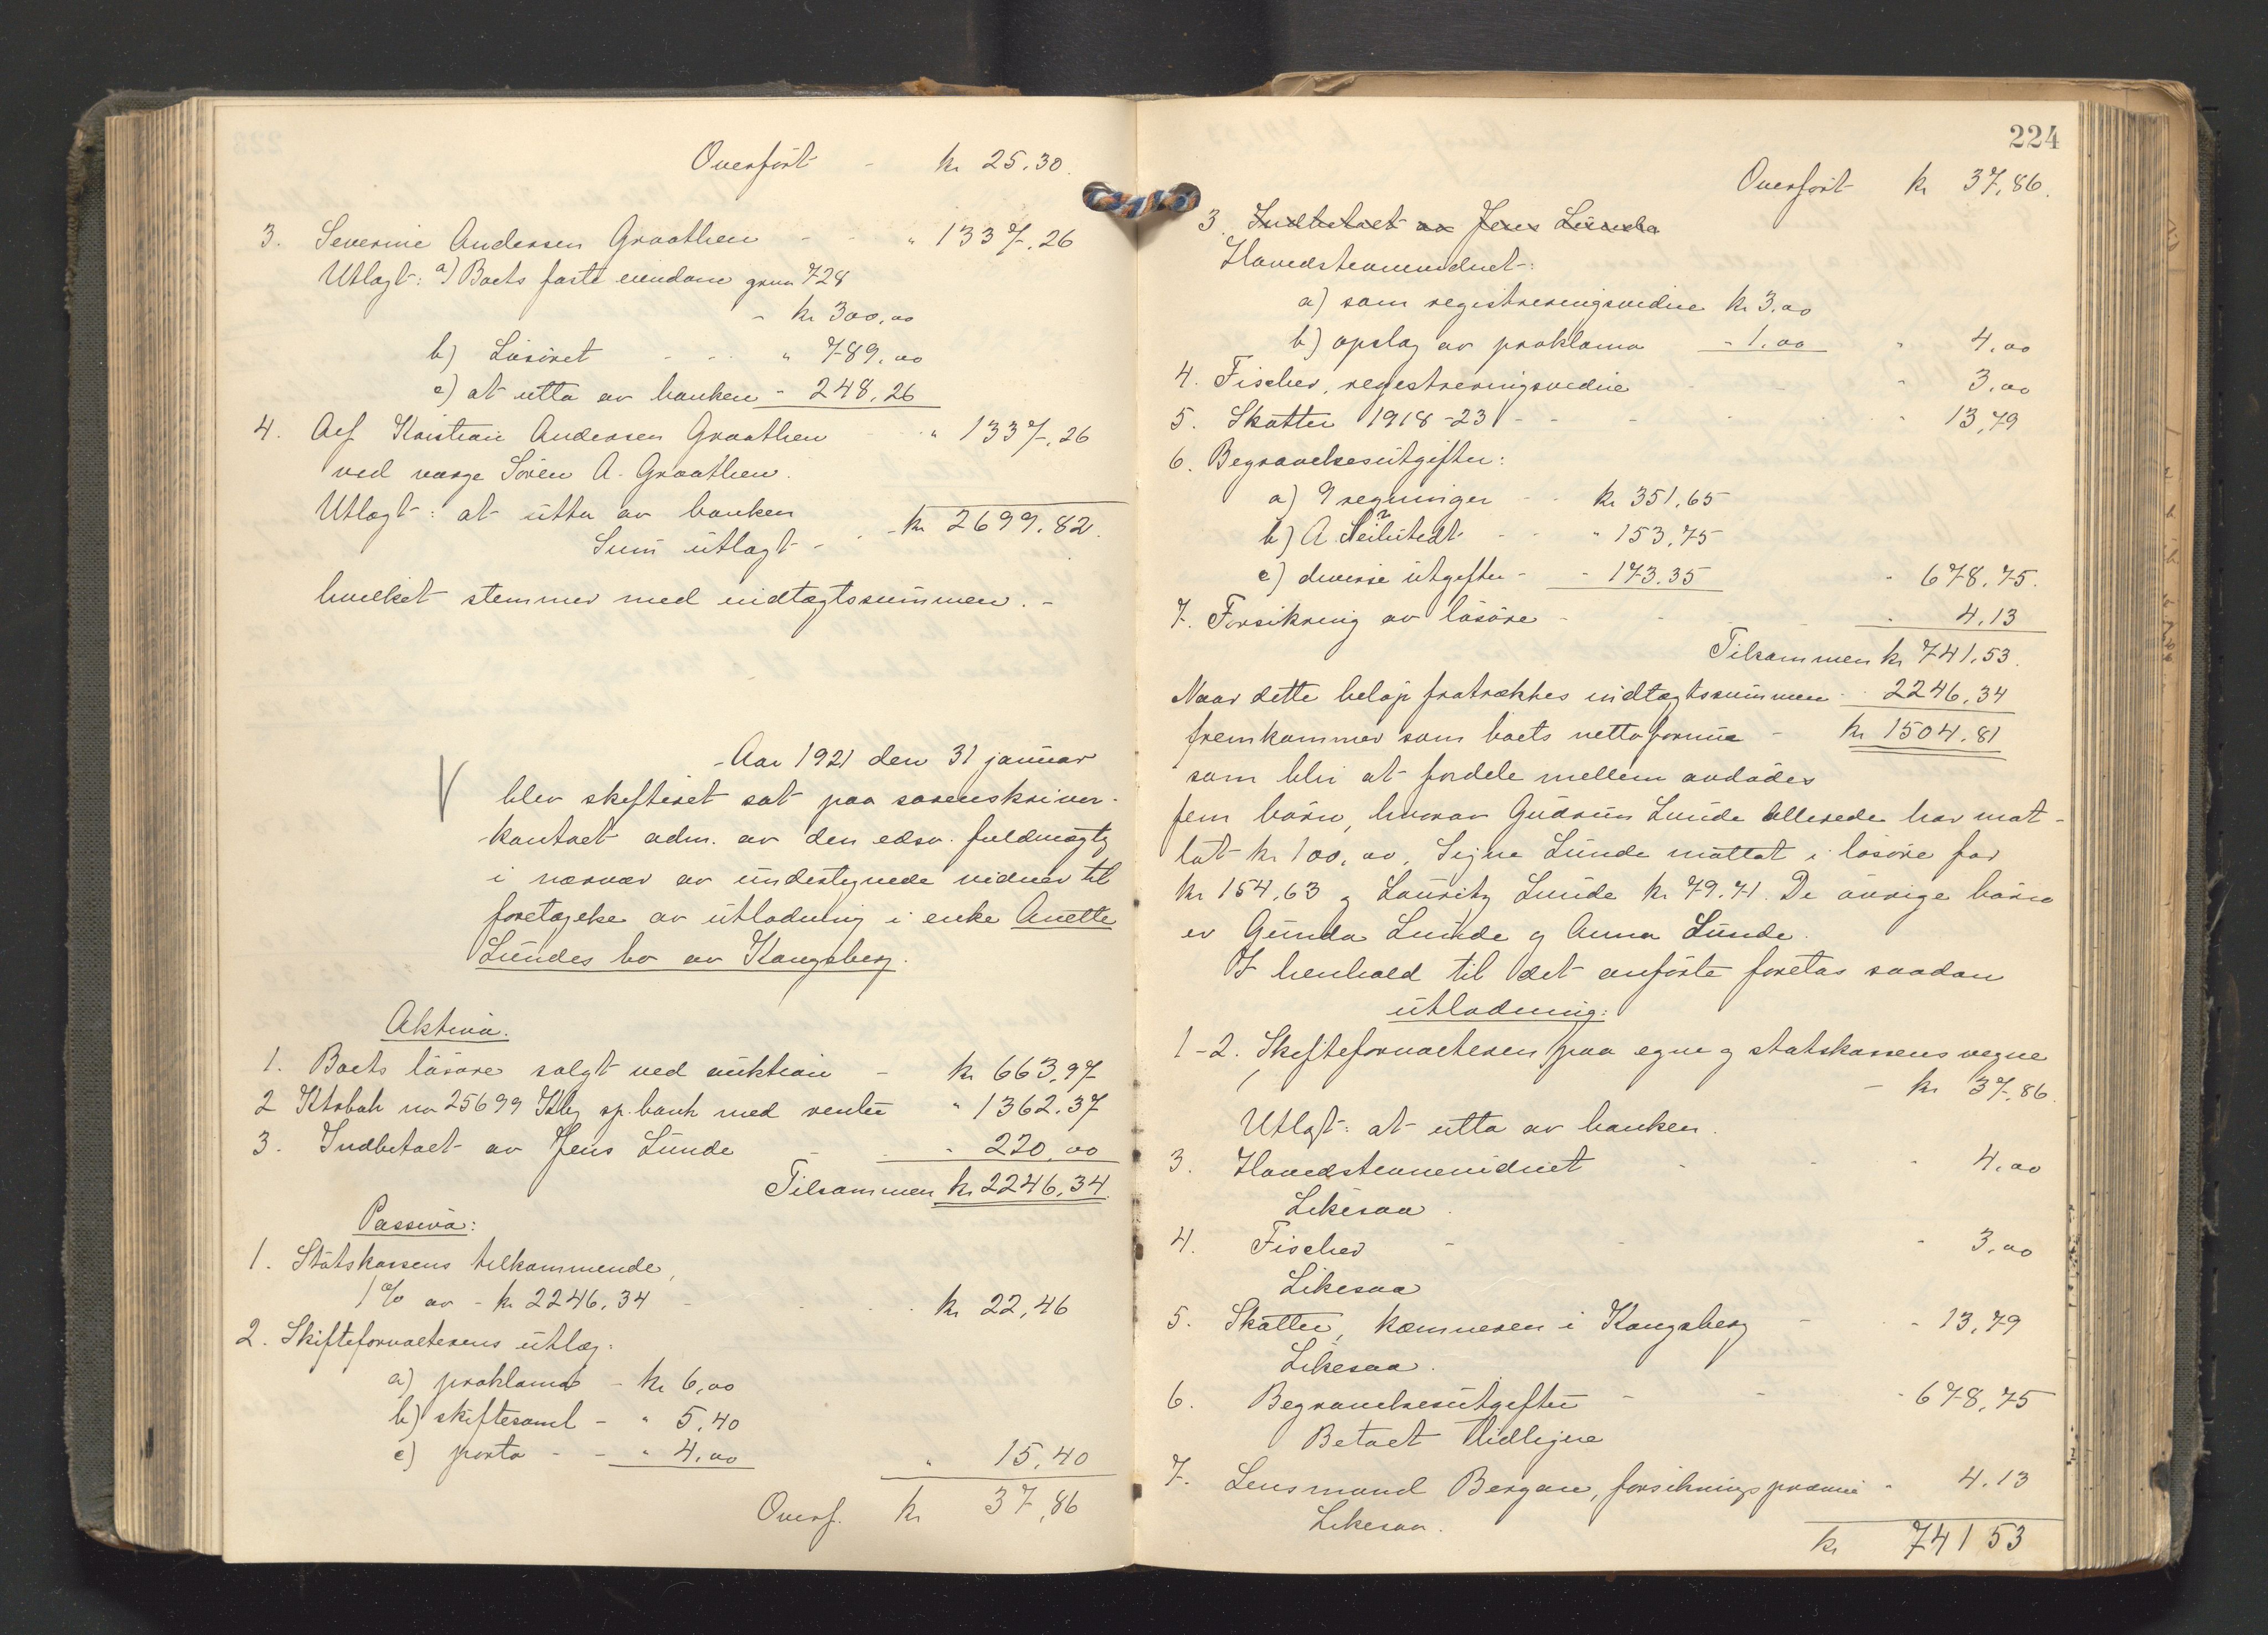 Overført - kr 25.30.
3. Severine Andersen Graathen - - " 1337.26
Utlagt: a) Boets faste eiendom grnr 728
- kr 300,00
b) Løsøret - - - " 789.00
c) at utta av banken - 248,26
4. Kristian Andersen Graathen - " 1337,26
ved verge Søren A. Graathen.
Utlagt: at utta av banken
Sum utlagt - - kr 2699.82.
hvilket stemmer med indtægtssummen. -
Aar 1921 den 31 januar
blev skifteret sat paa sorenskriver-
kontoret adm. av den edsv. fuldmægtig
i nærvær av undertegnede vidner til
foretagelse av utlodning i enke Anette
Lundes bo av Kongsberg.
Aktiva.
1. Boets løsøre solgt ved auktion - kr 663,97
2 Ktrbok no 25699 Kbg sp.bank med renter " 1362.37
3. Indbetalt av Jens Lunde - " 220,00
Tilsammen kr 2246,34.
Passiva:
1. Statskassens tilkommende,
1 % av - kr 2246,34 - - - kr 22,46
2. Skifteforvalterens utlæg:
a) proklama - kr 6,00
b) skiftesaml - " 5,40
c) porto - - " 4,00 " 15,40
Overf. kr 37,86
224
Overført kr 37,86.
3. Indbetalt av Jens Lunde
Hovedstevnevidnet:
a) som registreringsvidne kr 3.00
b) opslag av proklama - 1.00 " 4,00
4. Fischer, registreringsvidne - - " 3,00
5. Skatter 1918-23 - - - - " 13,79
6. Begravelsesutgifter:
a) 9 regninger - - kr 351,65
b) A. - - " 153,75
c) diverse utgifter - - 173.35 " 678,75.
7. Forsikring av løsøre - - - " 4,13
Tilsammen kr 741,53.
Naar dette beløp fratrækkes indtægtssummen - 2246,34
fremkommer som boets nettoformue - kr 1504,81
som blir at fordele mellem avdødes
fem børn, hvorav Gudrun Lunde allerede har mot-
tat kr 100,00, Signe Lunde mottat i løsøre for
kr 154,63 og Lauritz Lunde kr 79.71. De øvrige børn
er Gunda Lunde og Anna Lunde.
I henhold til det anførte foretas saadan
utlodning:
1-2. Skifteforvalteren paa egne og statskassens vegne
- kr 37,86.
Utlagt: at utta av banken.
3. Hovedstevnevidnet - - - 4,00
Likesaa.
4. Fischer - - - 3,00
Likesaa
5. Skatter, kæmneren i Kongsberg - - 13,79
Likesaa.
6. Begravelsesutgifter - - - 678,75
Betalt tidligere
7. Lensmand Bergan, forsikringspræmie - 4.13
Likesaa.
kr 741 53